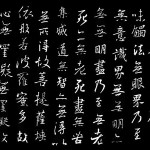 味觸法無眼界乃至
無意識界無無明亦
無無明盡乃至無老
死亦無老死盡無苦
集滅道無智亦無得以
無所得故菩提薩埵
依般若波羅蜜多故
心無罣礙無罣礙